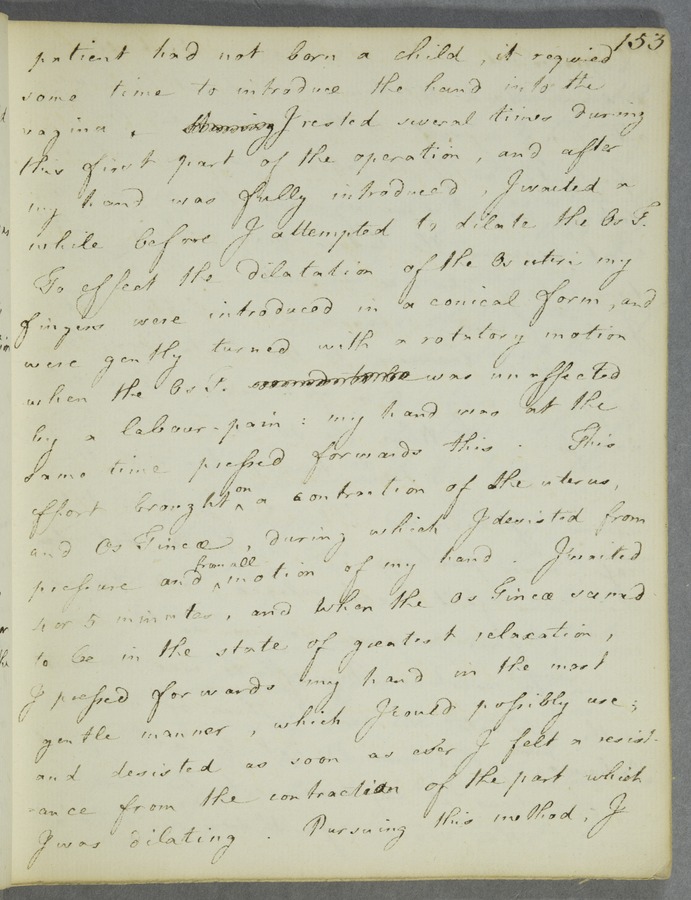 153
patient had not born a child, it required
some time to introduce the hand into the
vagina. I rested several times during
this first part of the operation, and after
my hand was fully introduced, I waited a
while before I attempted to dilate the Os T.
To effect the dilatation of the Os uteri my
fingers were introduced in a conical form, and
were gently turned with a rotatory motion
when the Os T. was unaffected
by a labour-pain: my hand was at the
same time pressed forwards this. This
effort brought on a contraction of the uterus,
and Os Tincæ, during which I desisted from
pressure and from all motion of my hand. I waited
4 or 5 minutes, and when the Os Tincæ seemed
to be in the state of greatest relaxation,
I pressed forwards my hand in the most
gentle manner, which I could possibly use;
and desisted as soon as ever I felt a resist-
-ance from the contraction of the part which
I was dilating. Pursuing this method, I